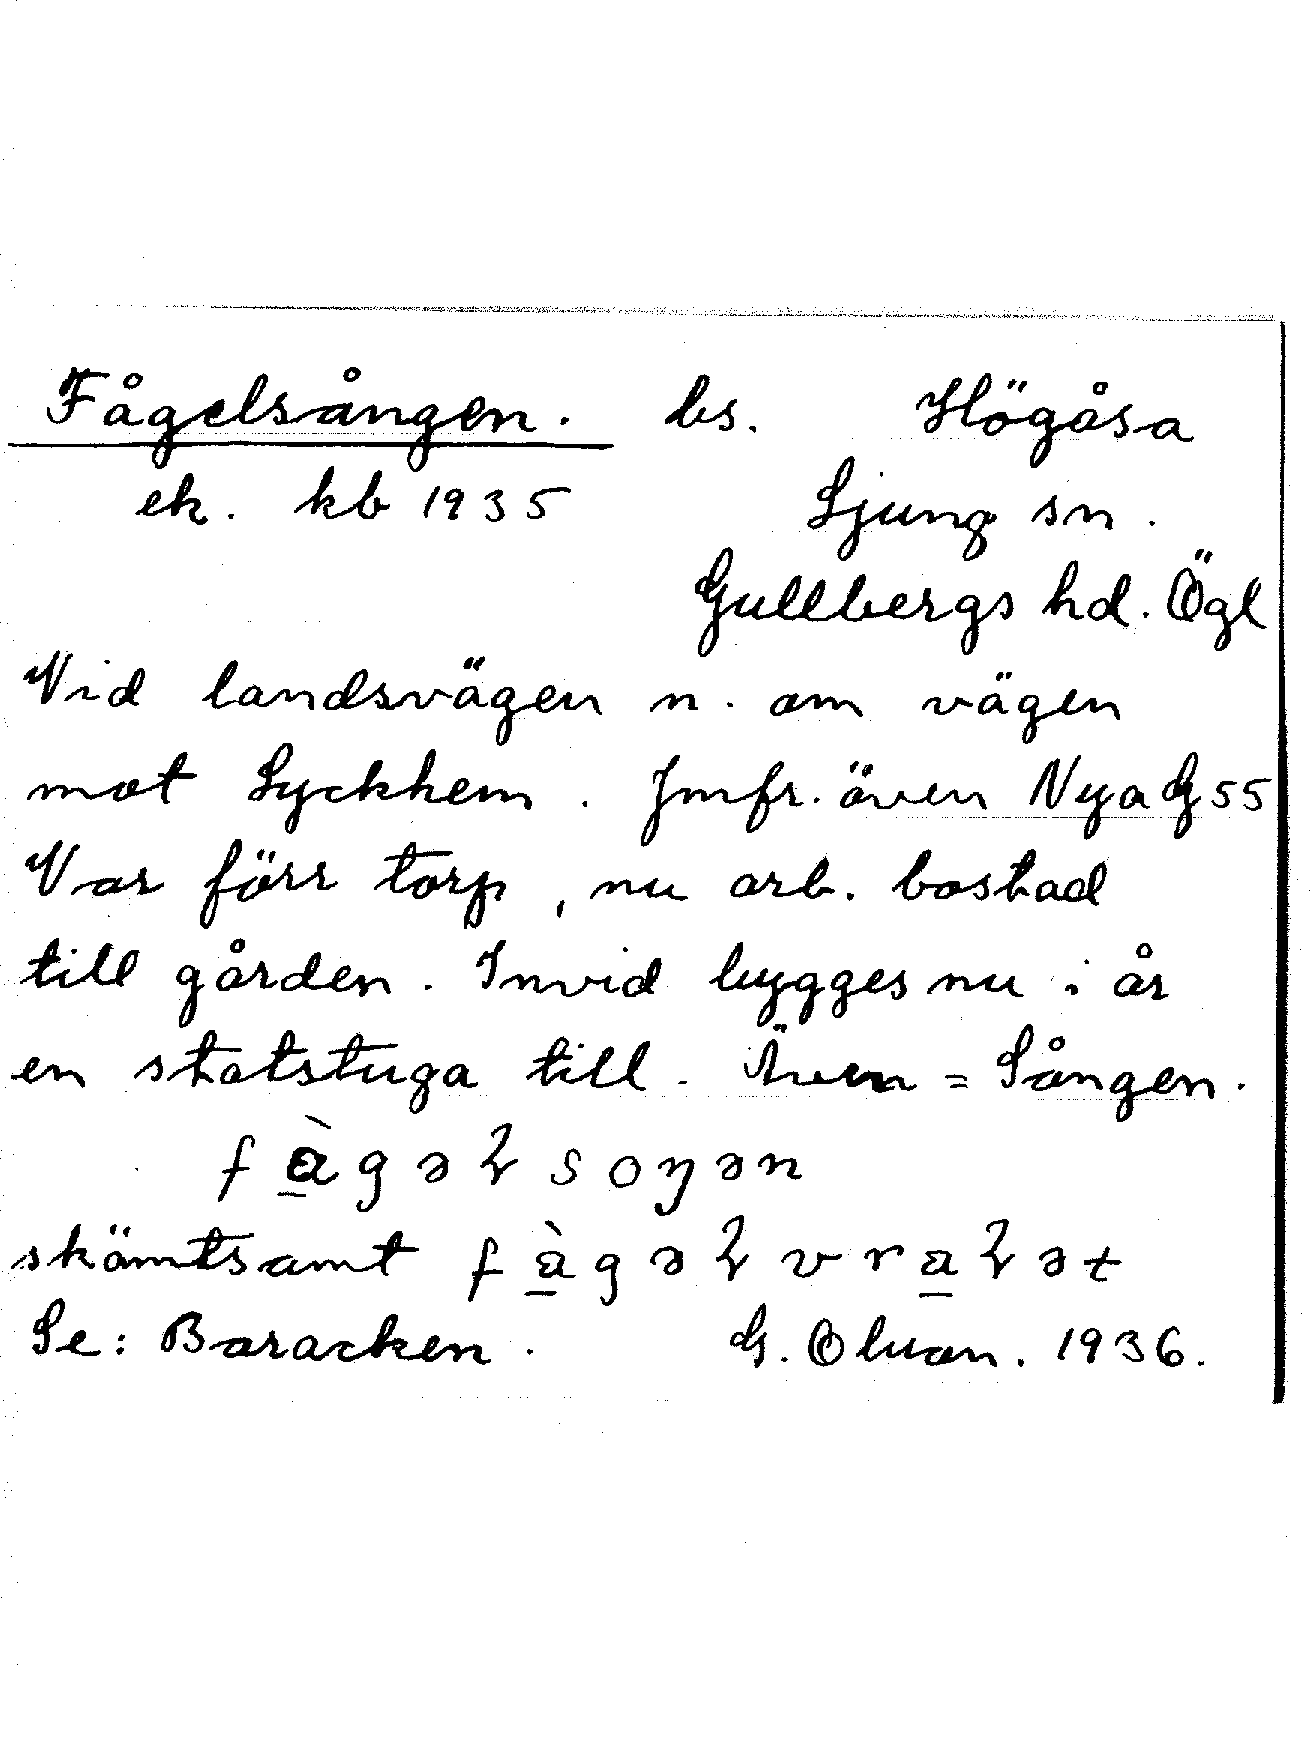 Fågelsången. bs. Högåsa
ek. kb 1935 Ljung sn.
Gullbergs hd. Ögl
Vid landsvägen n. om vägen
mot Lyckhem. Jmfr. även Nya G 55
Var förr torp, nu arb. bostad
till gården. Invid bygges nu i år
en statstuga till. Även = Sången.
fà̱gəɫsoŋən
skämtsamt fà̱gəɫvra̱ɫət
Se: Baracken. G. 1936.